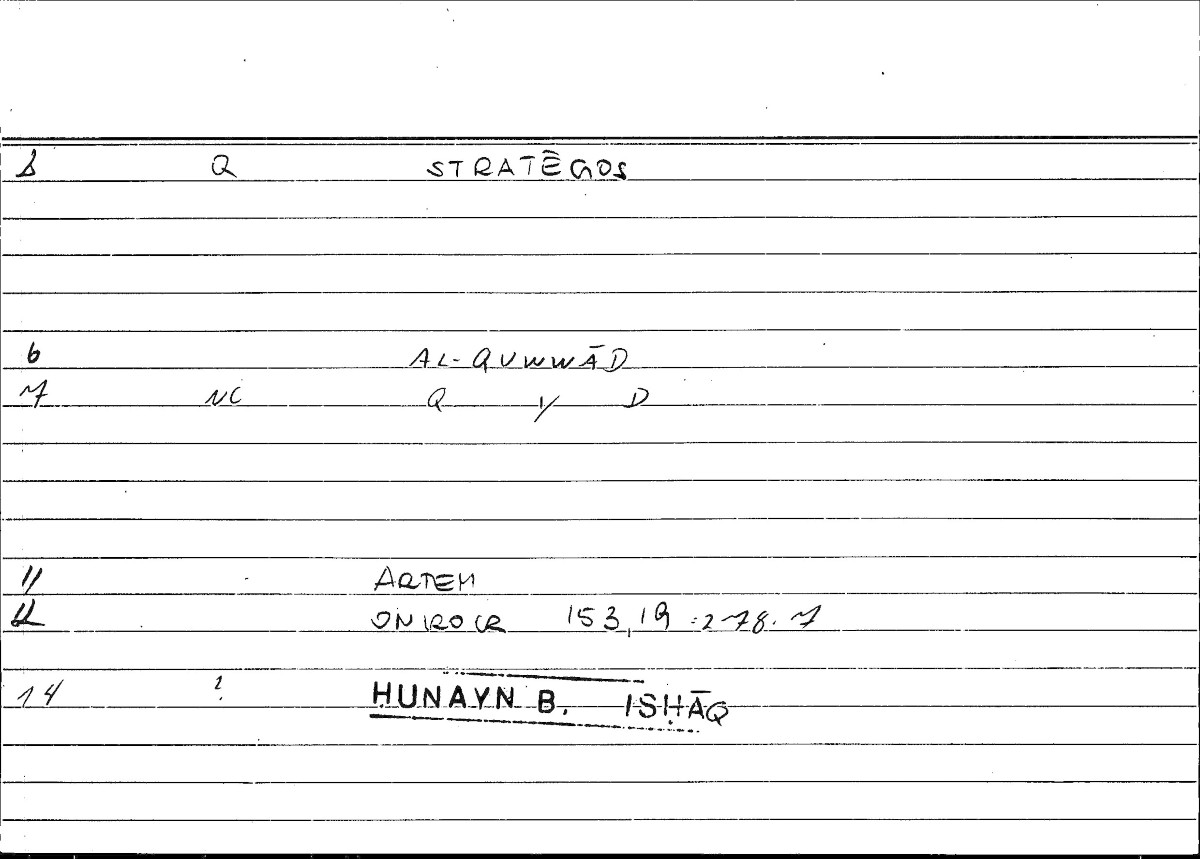 1 Q STRATĒGOS
6 AL-QUWWĀD
7 NC Q Y D
11 ARTEM
12 ONIROCR 153,19 : 278.7
14 ? ḤUNAYN B. ISḤĀQ